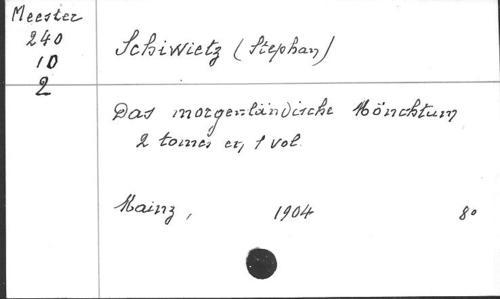 Meester
240
10
2
Schiwietz (Stephan)
Das morgenländische Mönchtum
2 tomes en 1 vol.
Mainz, 1904 8o